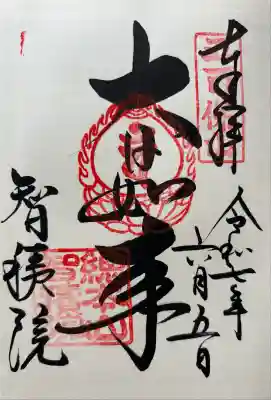 奉拝
令和七年
六月五日
大日如来
智積院